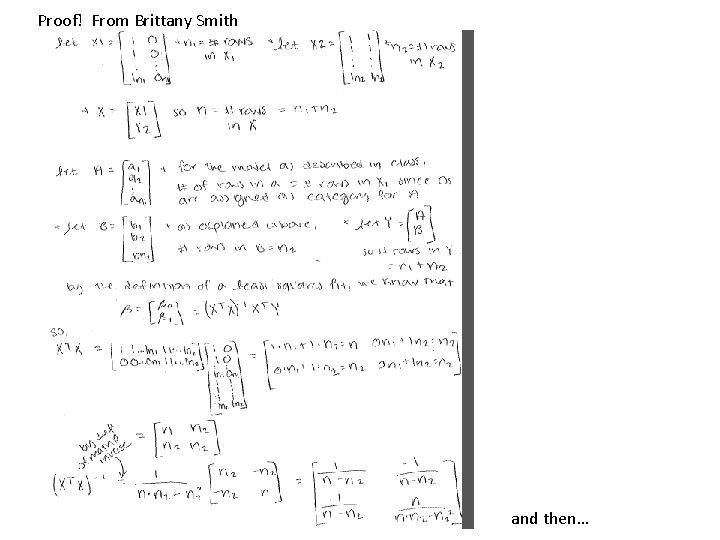 Proof! From Brittany Smith
let X1 = [1 0 1 0 ⋮ ⋮ 1n₁ 0n₁] * n₁ = # rows in X₁ * let X2 = [1 1 1 1 ⋮ ⋮ 1n₂ 1n₂] * n₂ = # rows in X₂
* X = [X1 X2] so n = # rows in X = n₁+n₂
let A = [a₁ a₂ ⋮ an₁] * for the model as described in class,
# of rows in a = # rows in X₁ since 0s
are assigned as category for A
* let B = [b₁ b₂ ⋮ bn₂] * as explained above, * let Y = [A B]
# rows in B = n₂ so # rows in Y
= n₁ + n₂
by the definition of a least squares fit, we know that
β = [β₀ β₁] = (XᵀX)⁻¹ XᵀY
so,
XᵀX = [1 1...1n₁ 1 1...1n₂ 0 0...0n₁ 1 1...1n₂] [1 0 1 0 ⋮ ⋮ 1n₁ 0n₁ 1 1 ⋮ ⋮ 1n₂ 1n₂] = [1·n₁+1·n₂=n 0n₁+1n₂=n₂ 0·n₁+1·n₂=n₂ 0n₁+1n₂=n₂]
by def of matrix inverse = [n n₂ n₂ n₂]
(XᵀX)⁻¹ = 1/(n·n₂-n₂²) [n₂ -n₂ -n₂ n] = [1/(n-n₂) -1/(n-n₂) -1/(n-n₂) n/(n·n₂-n₂²)]
and then...